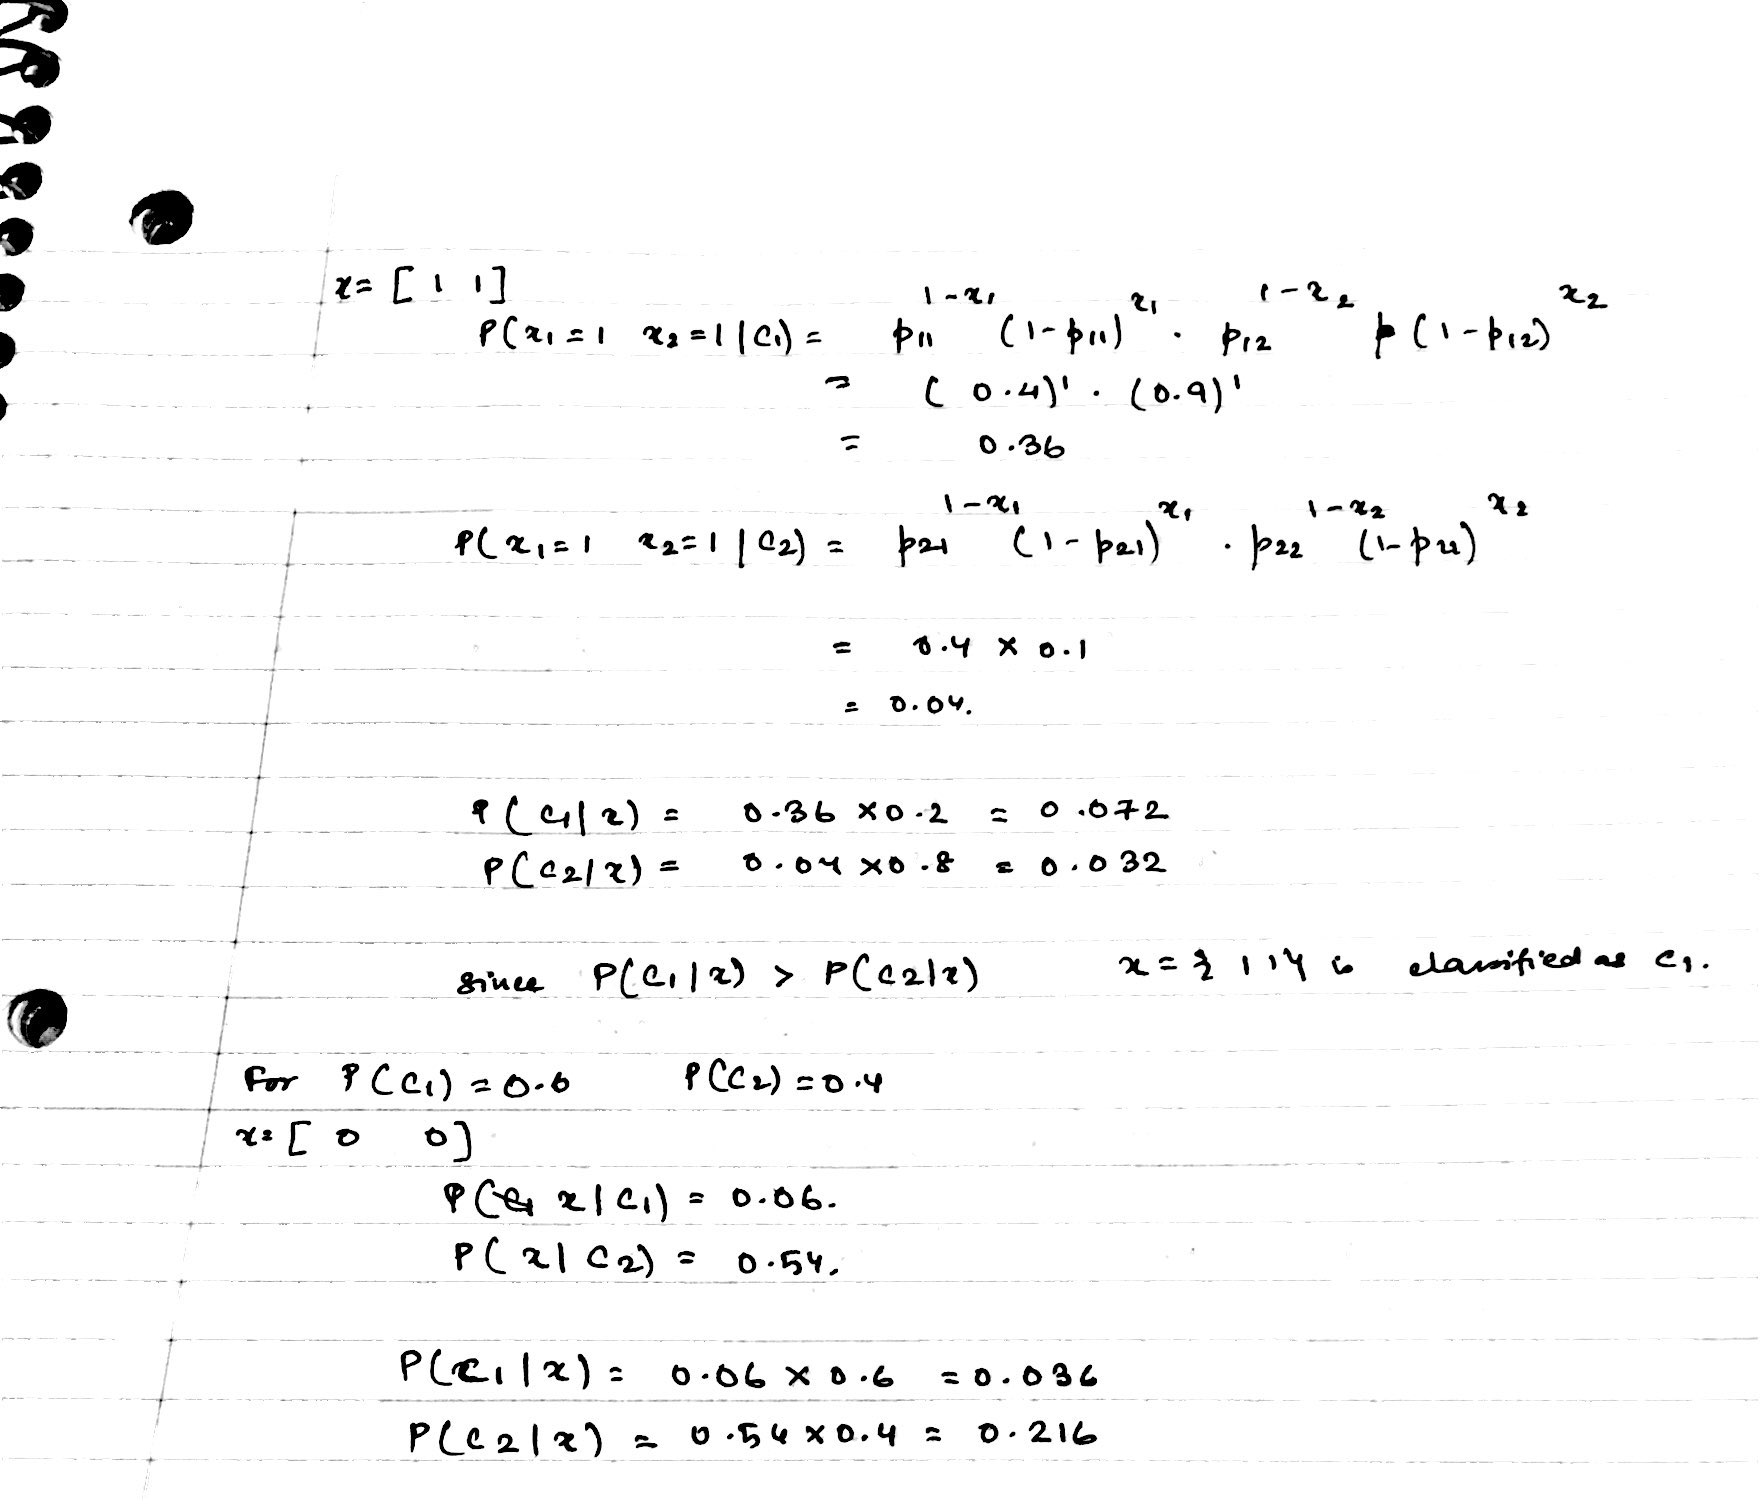 x = [ 1 1 ]
P(x₁ = 1 x₂ = 1 | C₁) = p₁₁^(1-x₁) (1-p₁₁)^(x₁) . p₁₂^(1-x₂) (1-p₁₂)^(x₂)
= (0.4)¹ . (0.9)¹
= 0.36
P(x₁ = 1 x₂ = 1 | C₂) = p₂₁^(1-x₁) (1-p₂₁)^(x₁) . p₂₂^(1-x₂) (1-p₂₂)^(x₂)
= 0.4 x 0.1
= 0.04.
P(C₁|x) = 0.36 x 0.2 = 0.072
P(C₂|x) = 0.04 x 0.8 = 0.032
since P(C₁|x) > P(C₂|x) x = { 1 1 } is classified as C₁.
For P(C₁) = 0.6 P(C₂) = 0.4
x = [ 0 0 ]
P( x | C₁) = 0.06.
P( x | C₂) = 0.54.
P(C₁|x) = 0.06 x 0.6 = 0.036
P(C₂|x) = 0.54 x 0.4 = 0.216